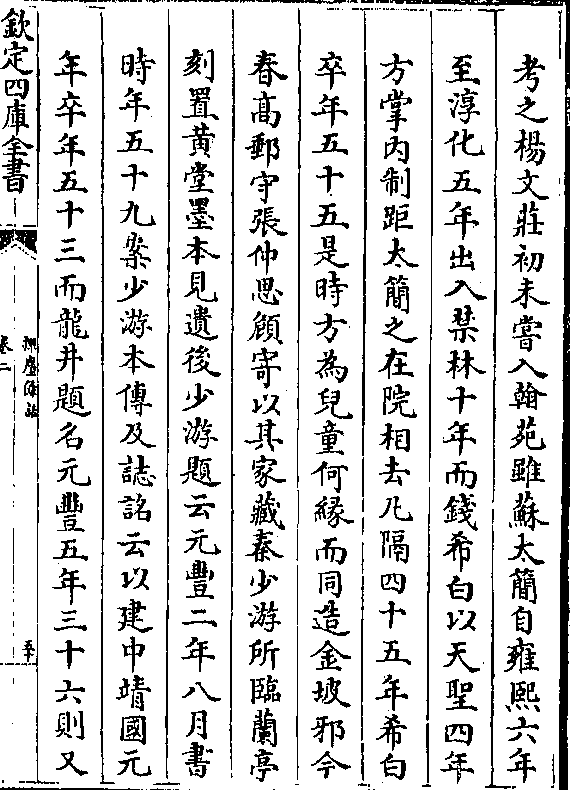 考之楊文莊初未嘗入翰苑雖蘇大簡自雍熙六年
至淳化五年出入禁林十年而錢希白以天聖四年
方掌內制距太簡之在院相去凡隔四十五年希白
卒年五十五是時方為兒童何緣而同造金坡邪今
春高郵守張仲思顧寄以其家藏秦少游所臨蘭亭
刻置黃堂墨本見遺後少游題云元豐二年八月書
時年五十九案少游本傳及誌銘云以建中靖國元
年卒年五十三而龍井題名元豐五年三十六則又
欽定四庫全書
卷二